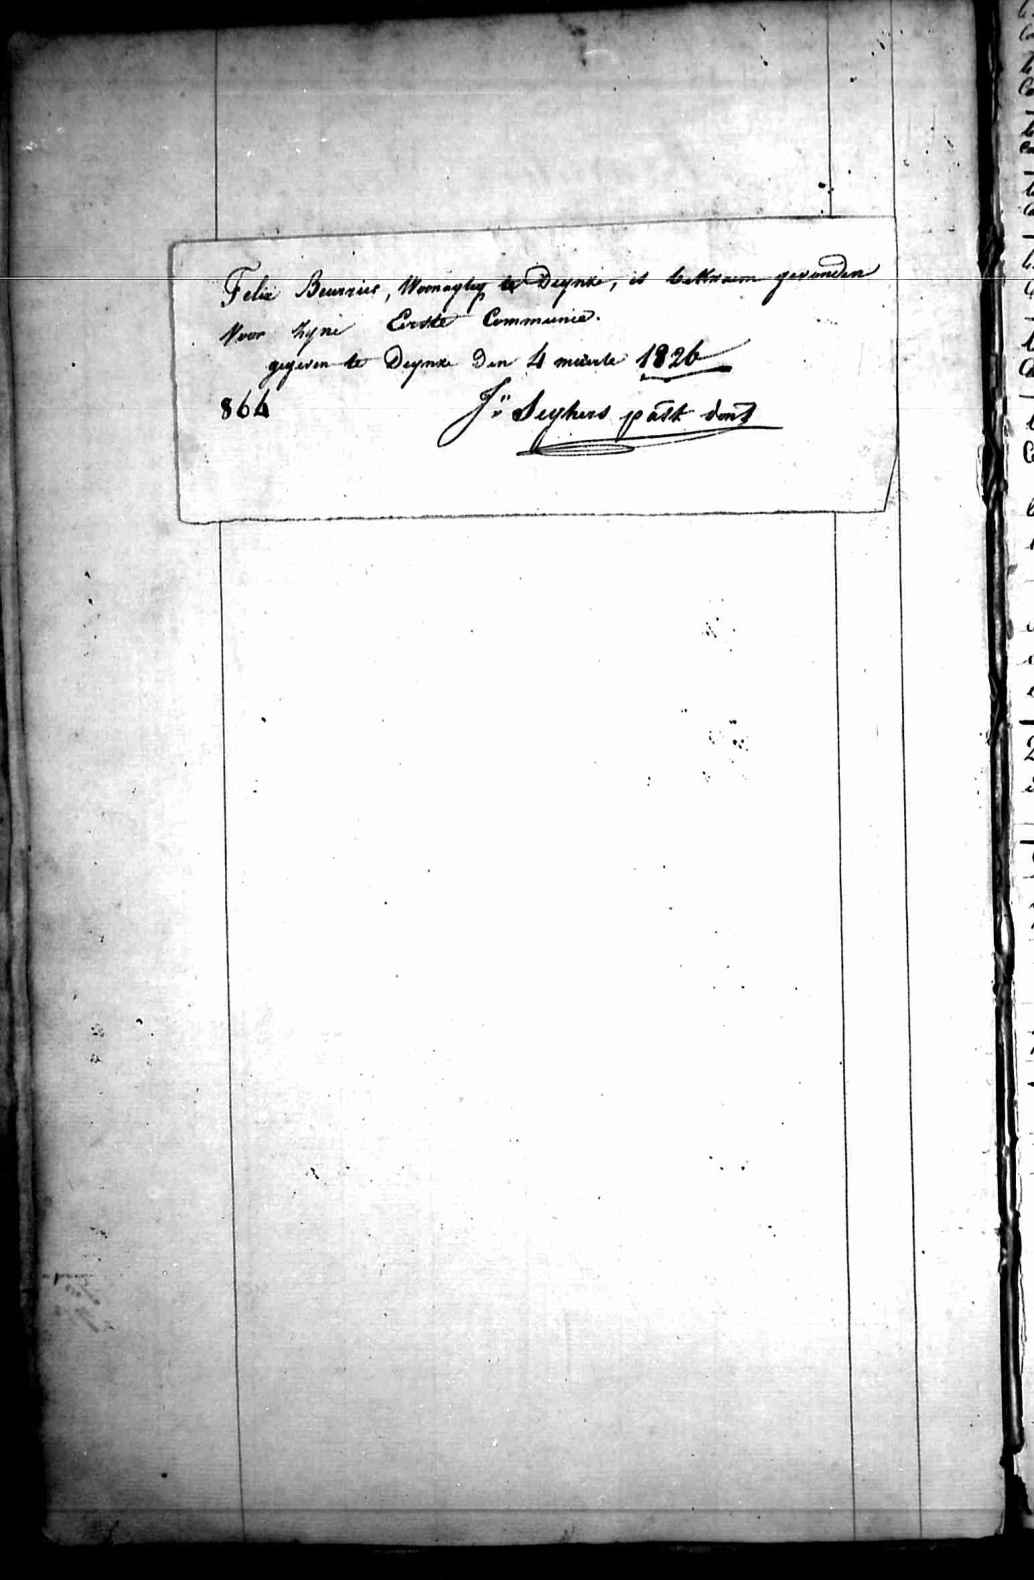 Felix Beurrier, Woonagtig te Deynse, is bekwaem gevonden
Voor zyne Eerste Communie.
gegeven te Deynse den 4 meerte 1826
864
Js. Seghers past